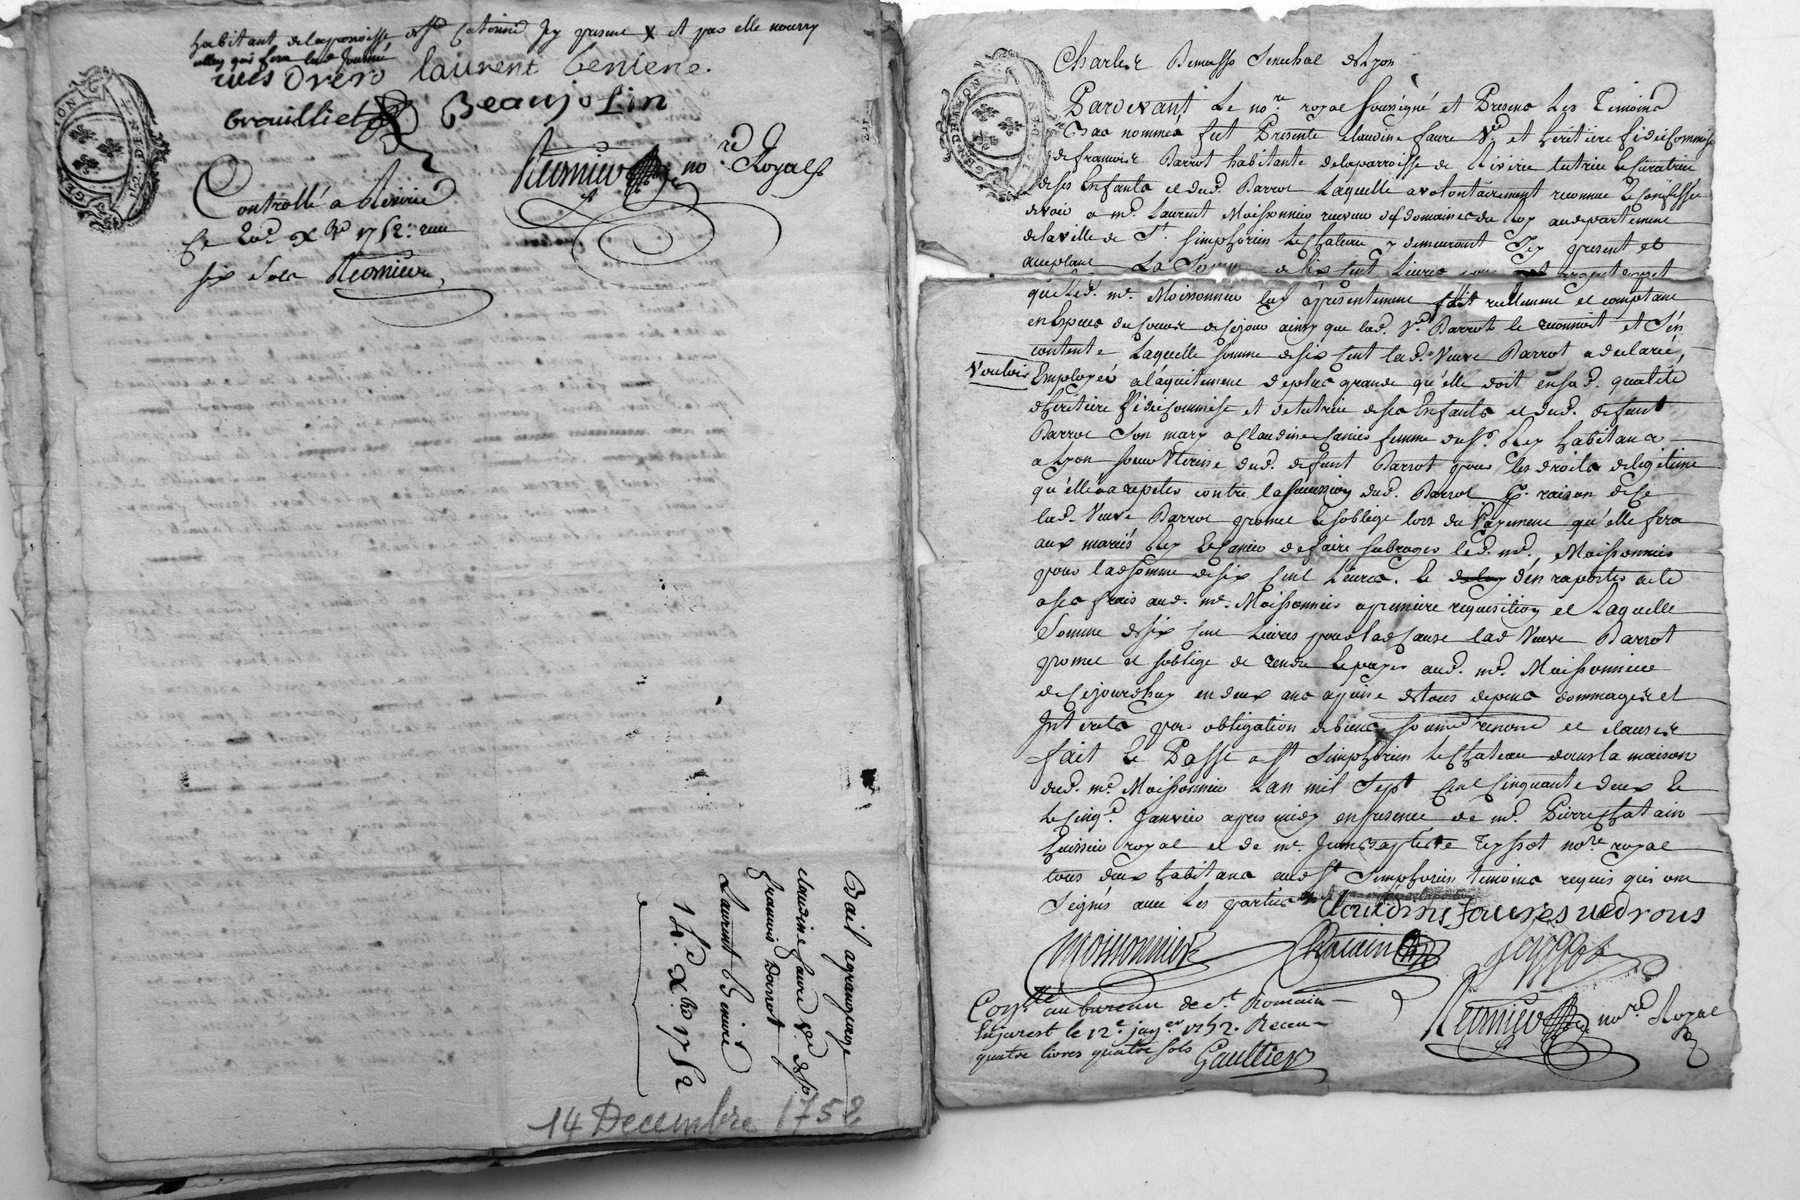 habitant de la parroisse de Ste Caterine Icy present X et par elle nourry
laurent beniere.
Grailliet Beaujolin
Reornieu nore Royal
Controllé a Riverie
ce 20d. Xbre 1752. recu
six sols Reornieu
Bail a grangeage
claudine faure Ve de Sr
francois Barrot
Laurent Beniere
14e Xbre 1752
14 Decembre 1752
Pardevant Le nore royal soussigné et Presens Les Temoins
Bas nommés fut Presente Claudine faure Ve et heritiere fideicommise
de francois Barrot habitante de la parroisse de Riverie tutrice et curatrice
de ses Enfants et dud. Barrot Laquelle a volontairement reconnu et confessé
devoir a me. Laurent Moissonnier receveur des domaines du Roy au departement
de la ville de St. Simphorien le Chateau y demeurant Icy present et
acceptant La Somme de six cent Livres
que led. me. Moissonnier luy a presentement fait reellement et comptant
en Especes du cours de ce jour ainsy que lad. Ve Barrot le reconnoit et s'en
contente Laquelle somme de six cent lad. Veuve Barrot a declaré,
vouloir
Employer a l'aquitement de plus grande qu'elle doit en sa d. qualité
d'heritiere fideicommise et de tutrice de ses Enfants et dud. defunt
Barrot Son mary a Claudine femme du Sr. Rey habitans
a Lyon soeur Uterine dud. defunt Barrot pour les droits de legitime
qu'elle a a repeter contre la succession dud. Barrot Pr. raison de ce
lad. Veuve Barrot promet et s'oblige lors du Payement qu'elle fera
aux mariés Rey et de faire subroger led. me. Moissonnier
pour lad somme de six cent Livres. et d'en raporter acte
a ses frais aud. me. Moissonnier a premiere requisition et Laquelle
Somme de six cent Livres pour lad Cause lad Veuve Barrot
promet et s'oblige de rendre et payer aud. me. Moissonnier
de ce jourdhuy en deux ans a peine de tous depens dommages et
Interets par obligation de biens soumis renonc et clauses
fait et Passé a St Simphorien le Chateau dans la maison
dud. me. Moissonnier L'an mil Sept Cent Cinquante deux et
le cinqe. Janvier apres midy en presence de me. Pierre Chatain
huissier royal et de me. Jean Baptiste Teyssot nore royal
tous deux habitans aud St Simphorien temoins requis qui ont
Signés avec les parties
Claudine faures
Moissonnier Chatain Teyssot
Contlé au bureau de St. Romain
En jarest le 12e janer 1752. Recu
quatre livres quatre sols Gaultier
Reornieu nore Royal